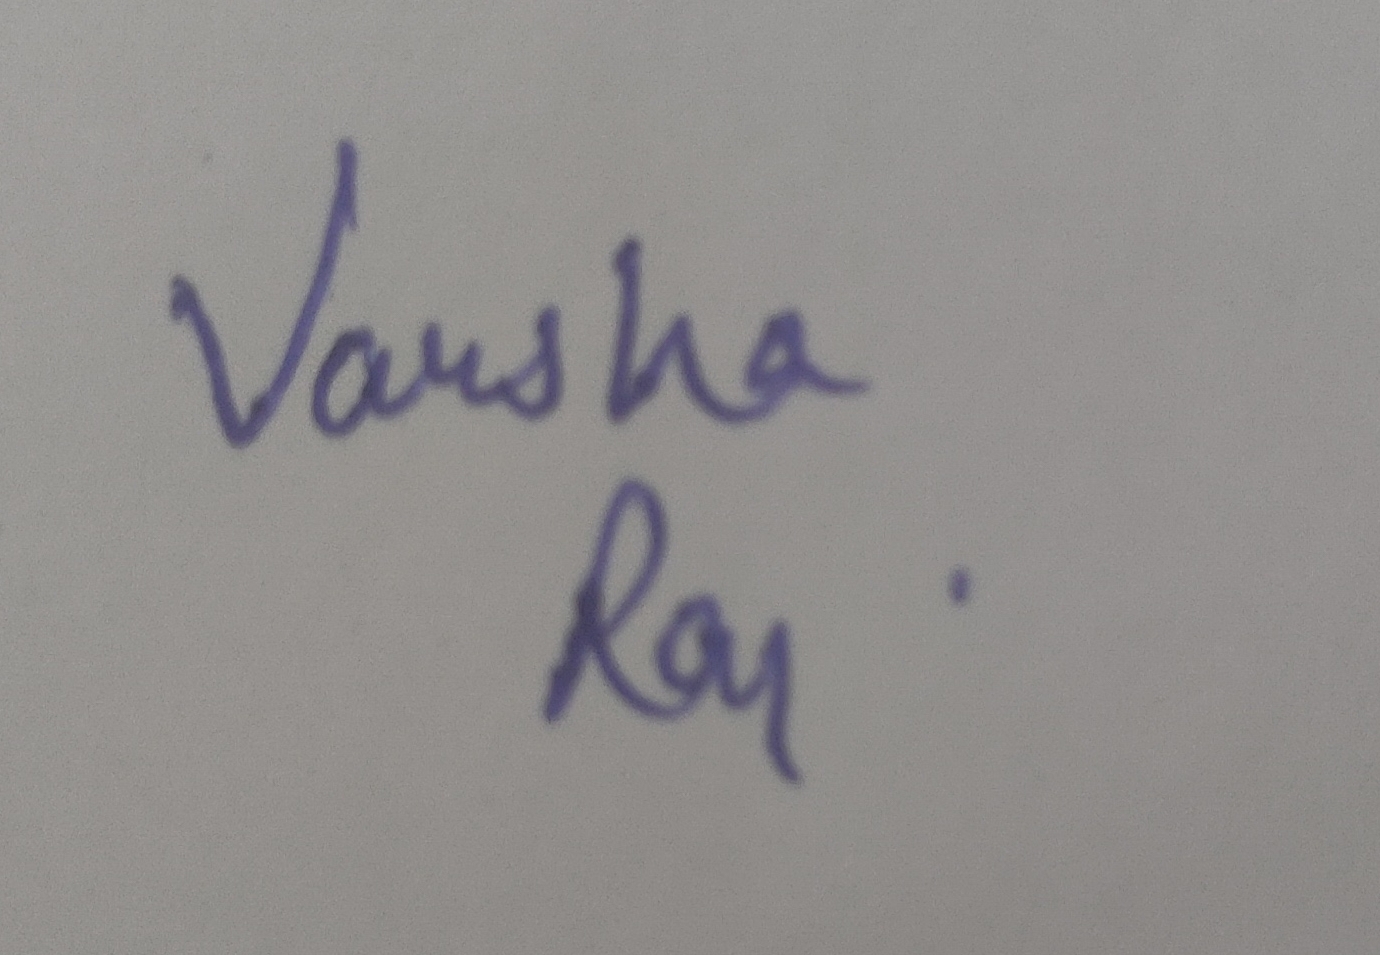 Varsha
Ray